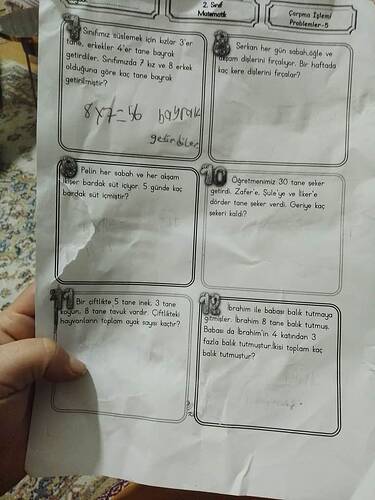 2. Sınıf
Matematik
Çarpma İşlemi
Problemler-5
7
Sınıfımız süslemek için kızlar 3'er
tane, erkekler 4'er tane bayrak
getirdiler. Sınıfımızda 7 kız ve 8 erkek
olduğuna göre kaç tane bayrak
getirilmiştir?
8x7=56 bayrak
getirdiler
8
Serkan her gün sabah,öğle ve
akşam dişlerini fırçalıyor. Bir haftada
kaç kere dişlerini fırçalar?
9
Pelin her sabah ve her akşam
ikişer bardak süt içiyor. 5 günde kaç
bardak süt içmiştir?
10
Öğretmenimiz 30 tane şeker
getirdi. Zafer'e, Şule'ye ve İlker'e
dörder tane şeker verdi. Geriye kaç
şekeri kaldı?
11
Bir çiftlikte 5 tane inek, 3 tane
koyun, 8 tane tavuk vardır. Çiftlikteki
hayvanların toplam ayak sayısı kaçtır?
12
İbrahim ile babası balık tutmaya
gitmişler. İbrahim 8 tane balık tutmuş.
Babası da İbrahim'in 4 katından 3
fazla balık tutmuştur.İkisi toplam kaç
balık tutmuştur?